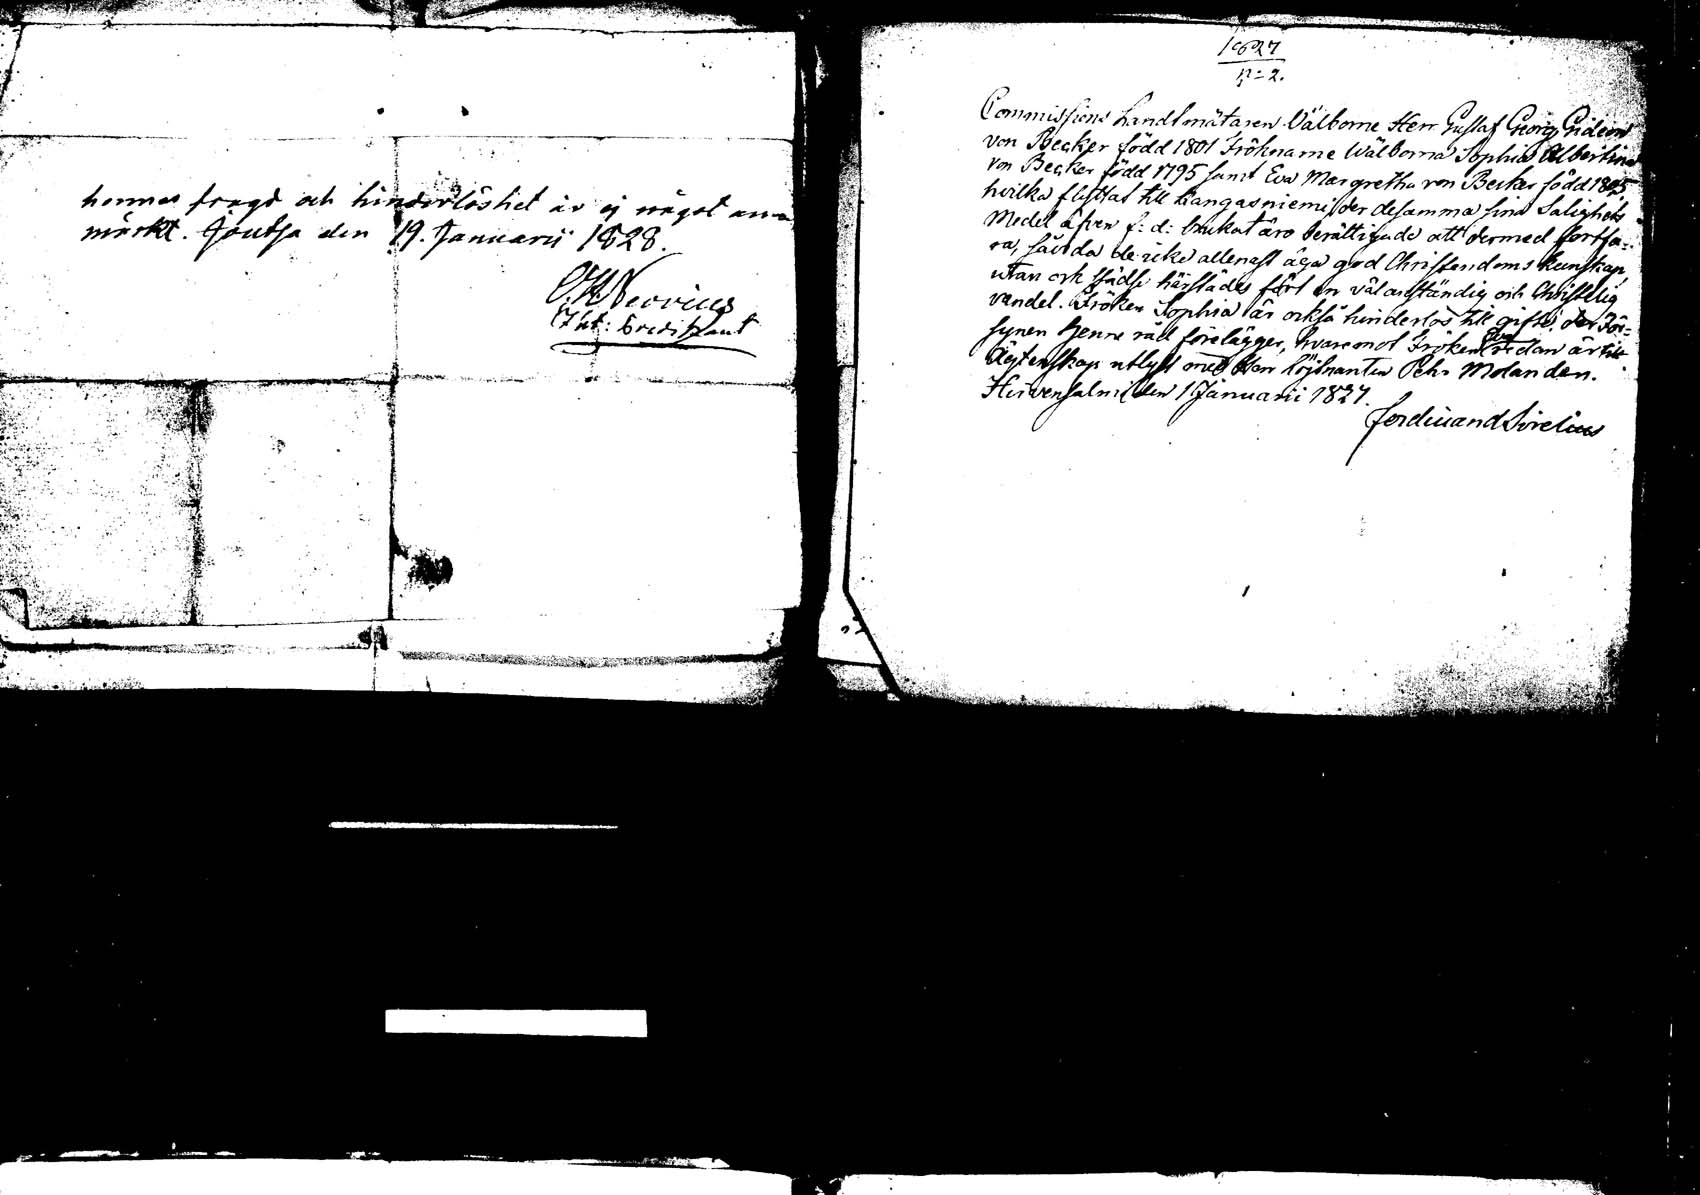 hennes frägd och hinderlöshet är ej något an¬
märkt. Joutsa den 19. Januarii 1828.
Neovius
1827
N=2.
Commissions Landtmätaren Välborne Herr Gustaf Georg Gideon
von Becker född 1801 Fröknarne Wälborna Sophia Albertina
von Becker född 1795 samt Eva Margretha von Becker född 1805
hvilka flyttat till Kangasniemi der desamma sina Salighets
Medel äfven f: d: brukat äro berättigade att dermed fortfa=
ra, såvida de icke allenast äga god Christendoms kunskap,
utan ock städse härstädes fört en väl anständig och Christelig
vandel. Fröken Sophia är också hinderlös till gifte, der För=
synen henne råd förelägger, hvaremot Fröken Eva redan är till
Ägtenskap utlyst med Herr Löjtnanten Pehr Molander.
Hirvensalmi den 1 Januarii 1827.
Ferdinand Sirelius